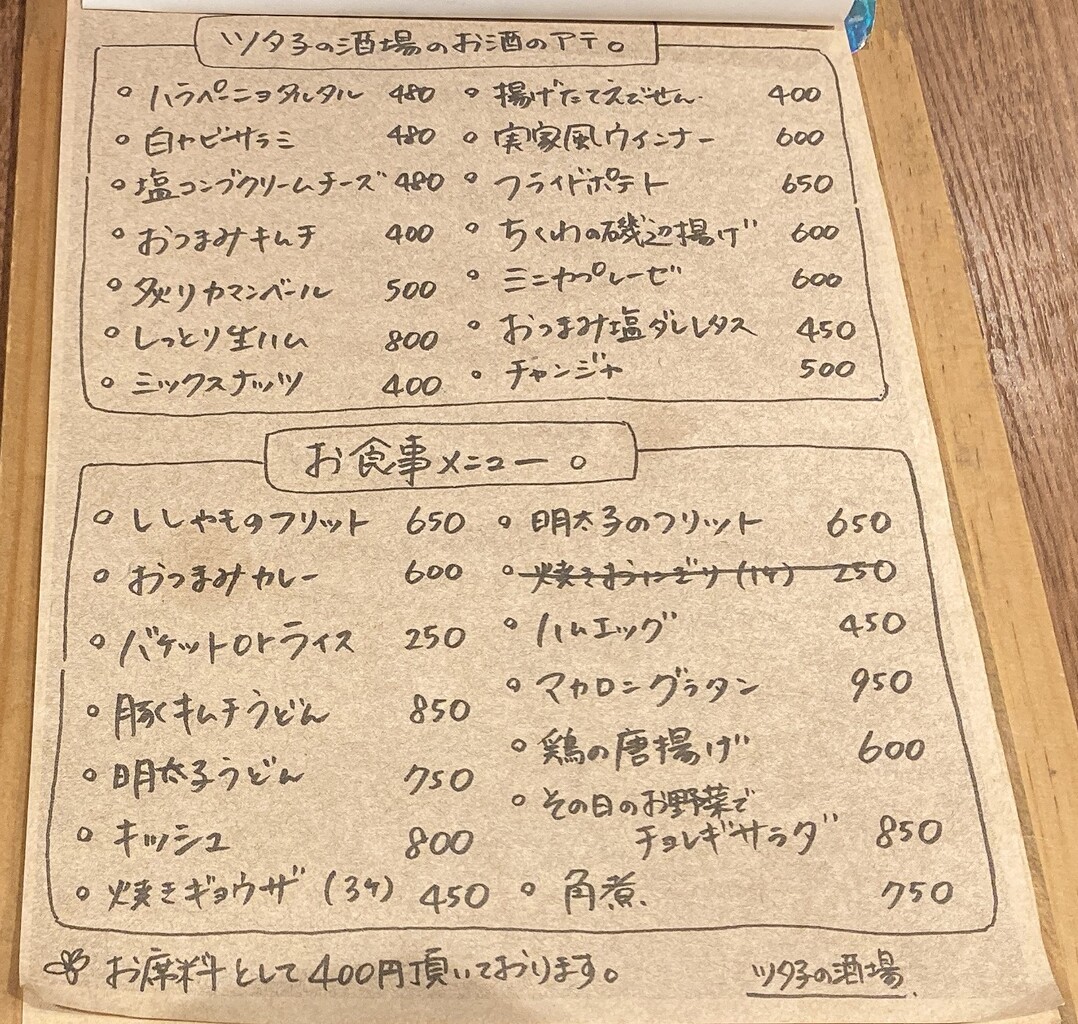 ツタ子の酒場のお酒のアテ。
。ハラペーニョタルタル 480
。白カビサラミ 480
。塩コンブクリームチーズ 480
。おつまみキムチ 400
。炙りカマンベール 500
。しっとり生ハム 800
。ミックスナッツ 400
。揚げたてえびせん 400
。実家風ウインナー 600
。フライドポテト 650
。ちくわの磯辺揚げ 600
。ミニカプレーゼ 600
。おつまみ塩ダレレタス 450
。チャンジャ 500
お食事メニュー。
。ししゃものフリット 650
。おつまみカレー 600
。バケットorライス 250
。豚キムチうどん 850
。明太子うどん 750
。キッシュ 800
。焼きギョウザ(3ケ) 450
。明太子のフリット 650
。焼きおにぎり(1ケ) 250
。ハムエッグ 450
。マカロニグラタン 950
。鶏の唐揚げ 600
。その日のお野菜で
チョレギサラダ 850
。角煮. 750
お席料として400円頂いております。
ツタ子の酒場.